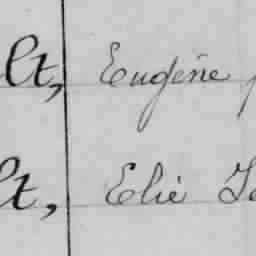 lt, Eugène
lt, Elie